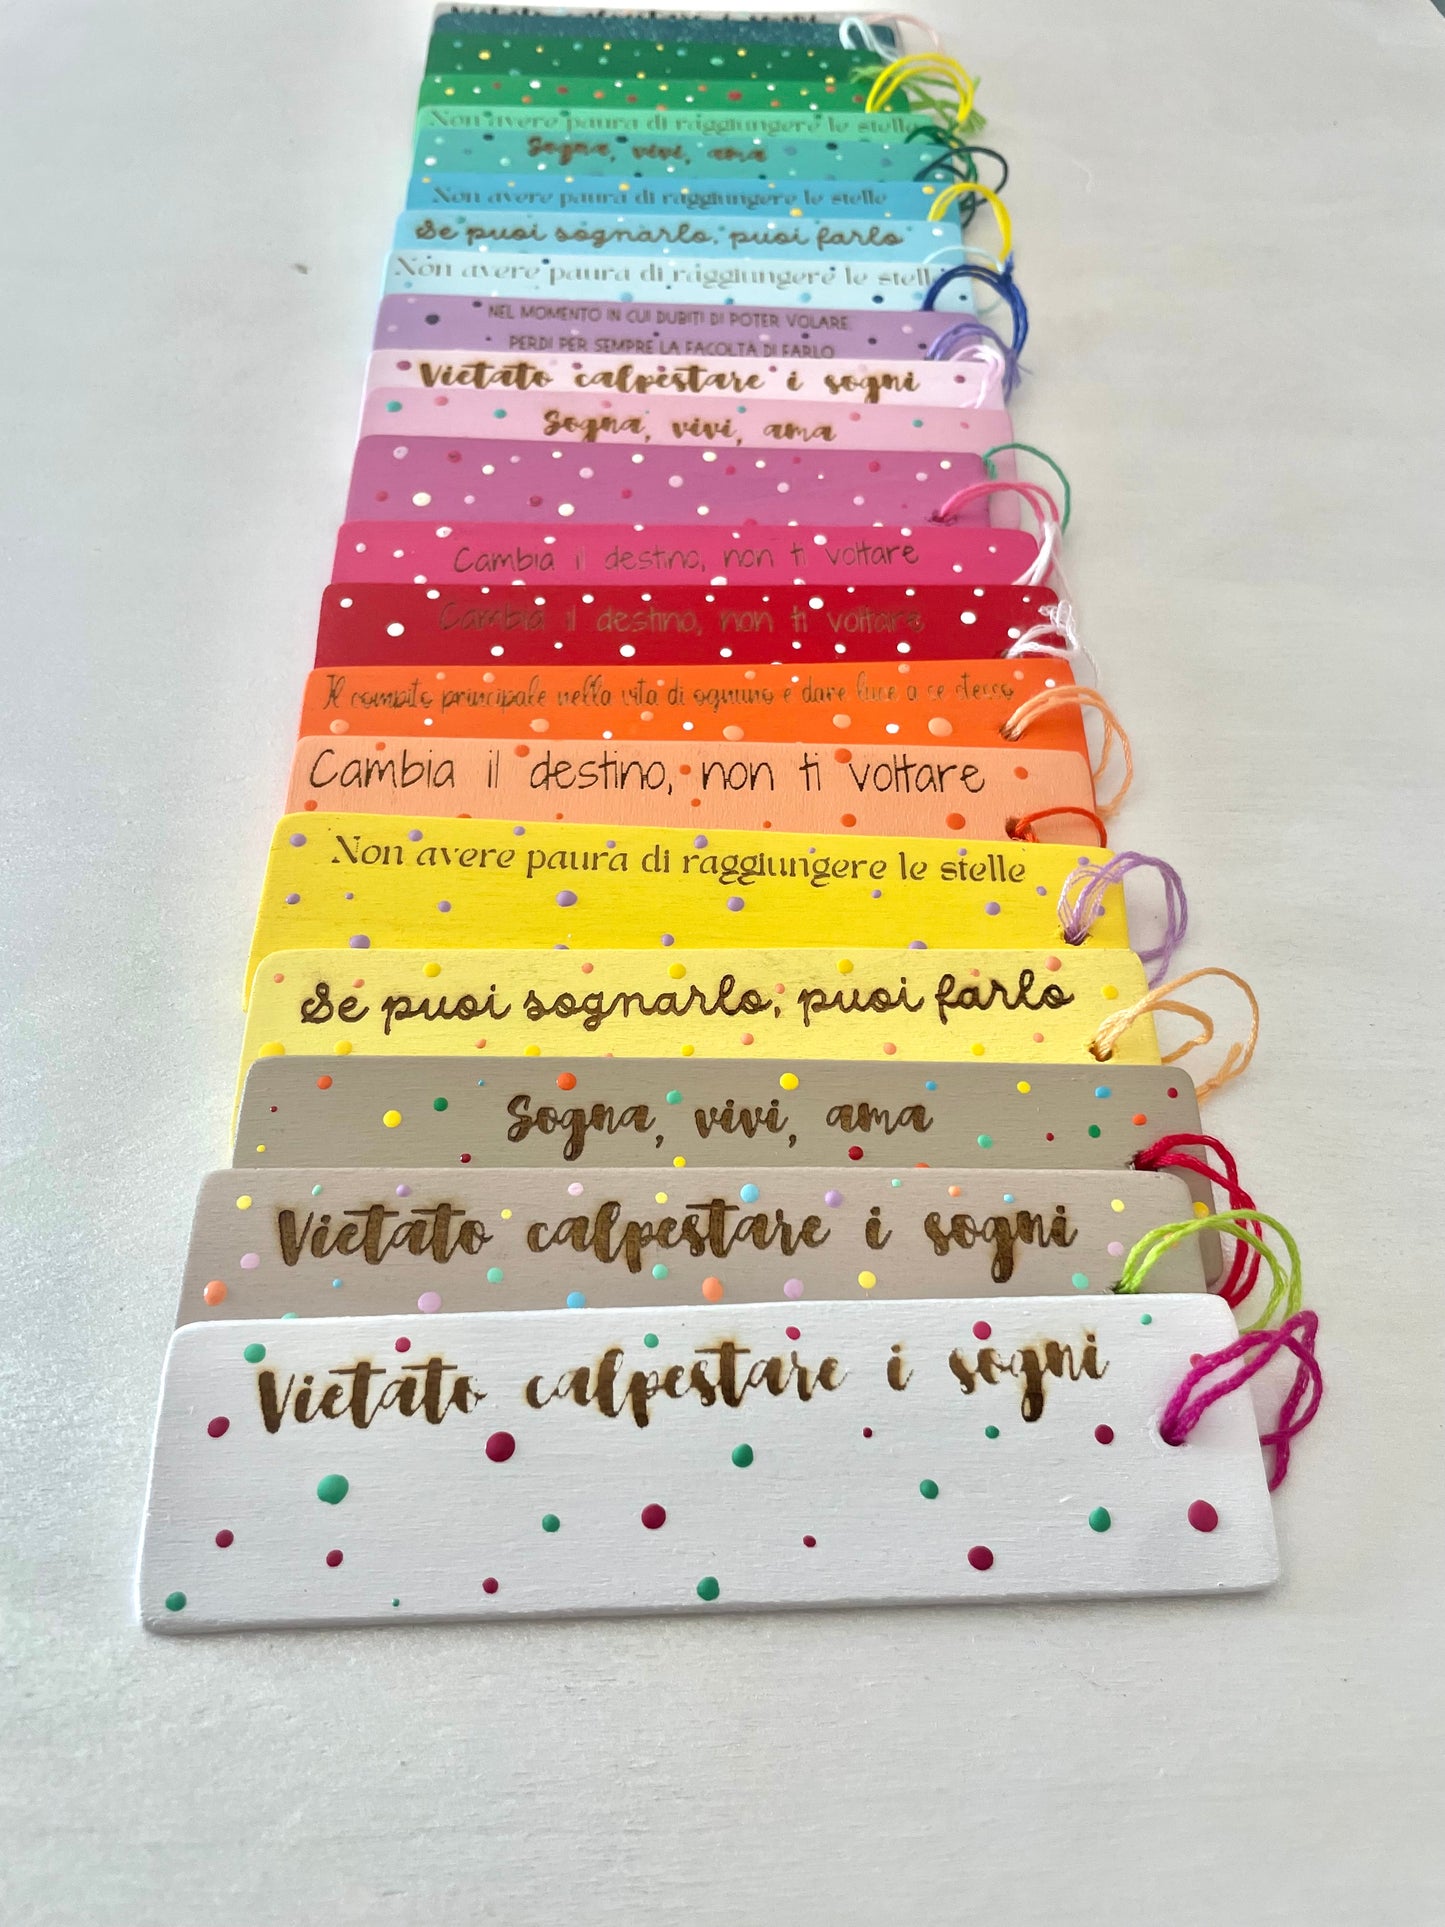 Non avere paura di raggiungere le stelle
Sogna, vivi, ama
Non avere paura di raggiungere le stelle
Se puoi sognarlo, puoi farlo
Non avere paura di raggiungere le stell
NEL MOMENTO IN CUI DUBITI DI POTER VOLARE,
PERDI PER SEMPRE LA FACOLTÀ DI FARLO
Vietato calpestare i sogni
Sogna, vivi, ama
Cambia il destino, non ti voltare
Cambia il destino, non ti voltare
Il compito principale nella vita di ognuno è dare luce a se stesso
Cambia il destino, non ti voltare
Non avere paura di raggiungere le stelle
Se puoi sognarlo, puoi farlo
Sogna, vivi, ama
Vietato calpestare i sogni
Vietato calpestare i sogni